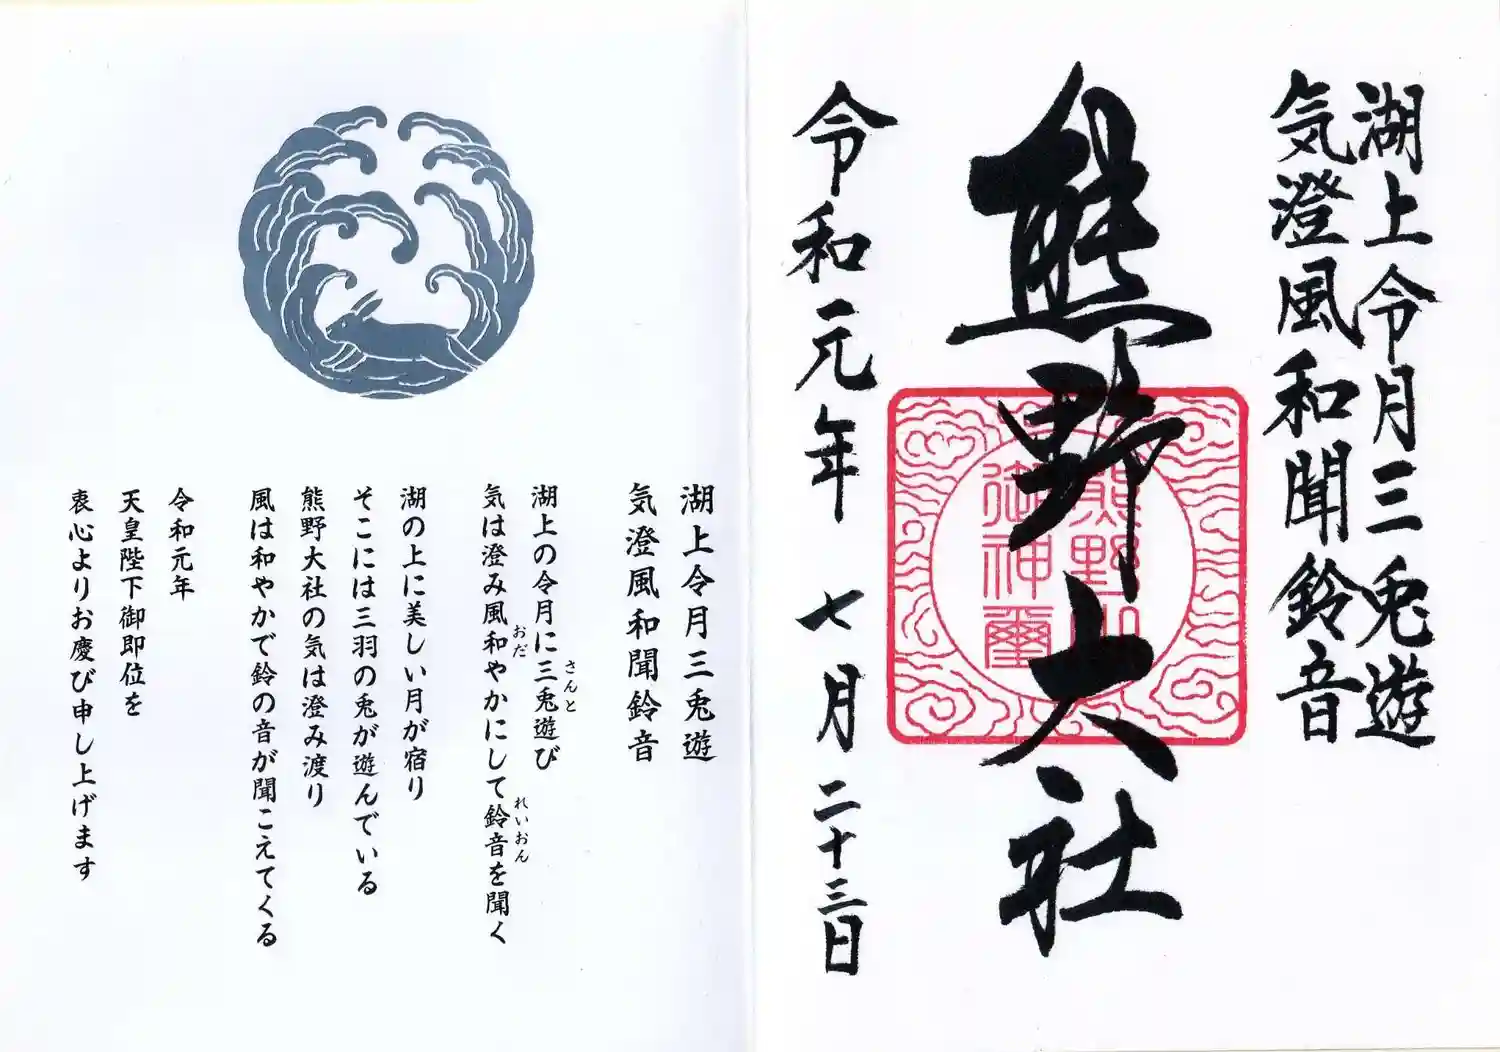 湖上令月三兎遊
気澄風和聞鈴音
熊野大社
熊野
御神璽
令和元年 七月二十三日
湖上令月三兎遊
気澄風和聞鈴音
湖上の令月に三兎遊び
さんと
気は澄み風和やかにして鈴音を聞く
おだ
れいおん
湖の上に美しい月が宿り
そこには三羽の兎が遊んでいる
熊野大社の気は澄み渡り
風は和やかで鈴の音が聞こえてくる
令和元年
天皇陛下御即位を
衷心よりお慶び申し上げます